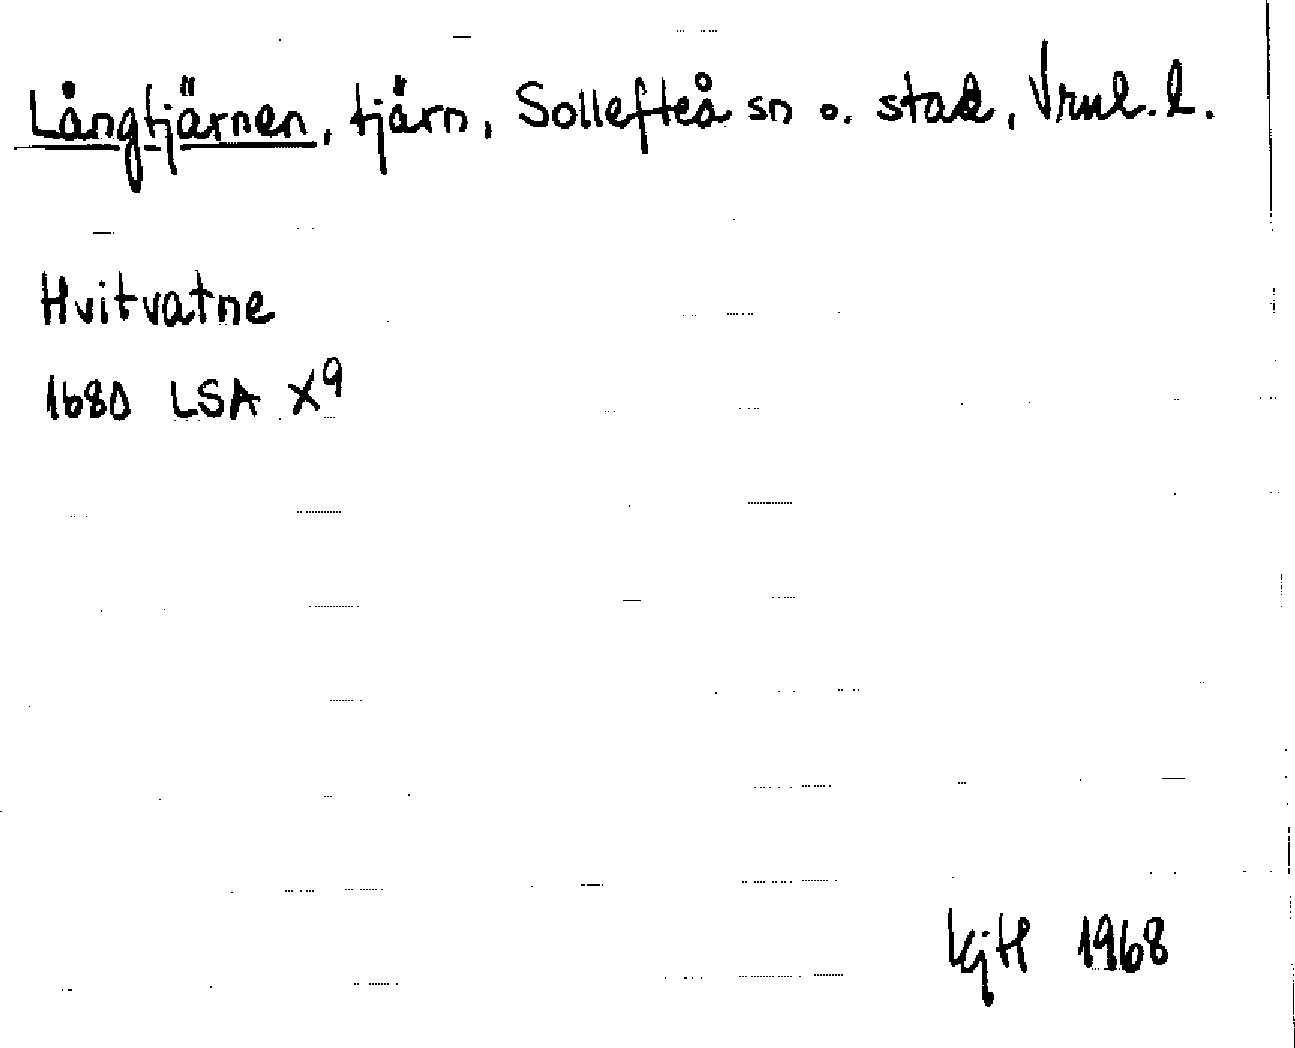 Långtjärnen, tjärn, Sollefteå sn o. stad, Vrnl. l.
Hvitvatne
1680 LSA X9
KjH 1968